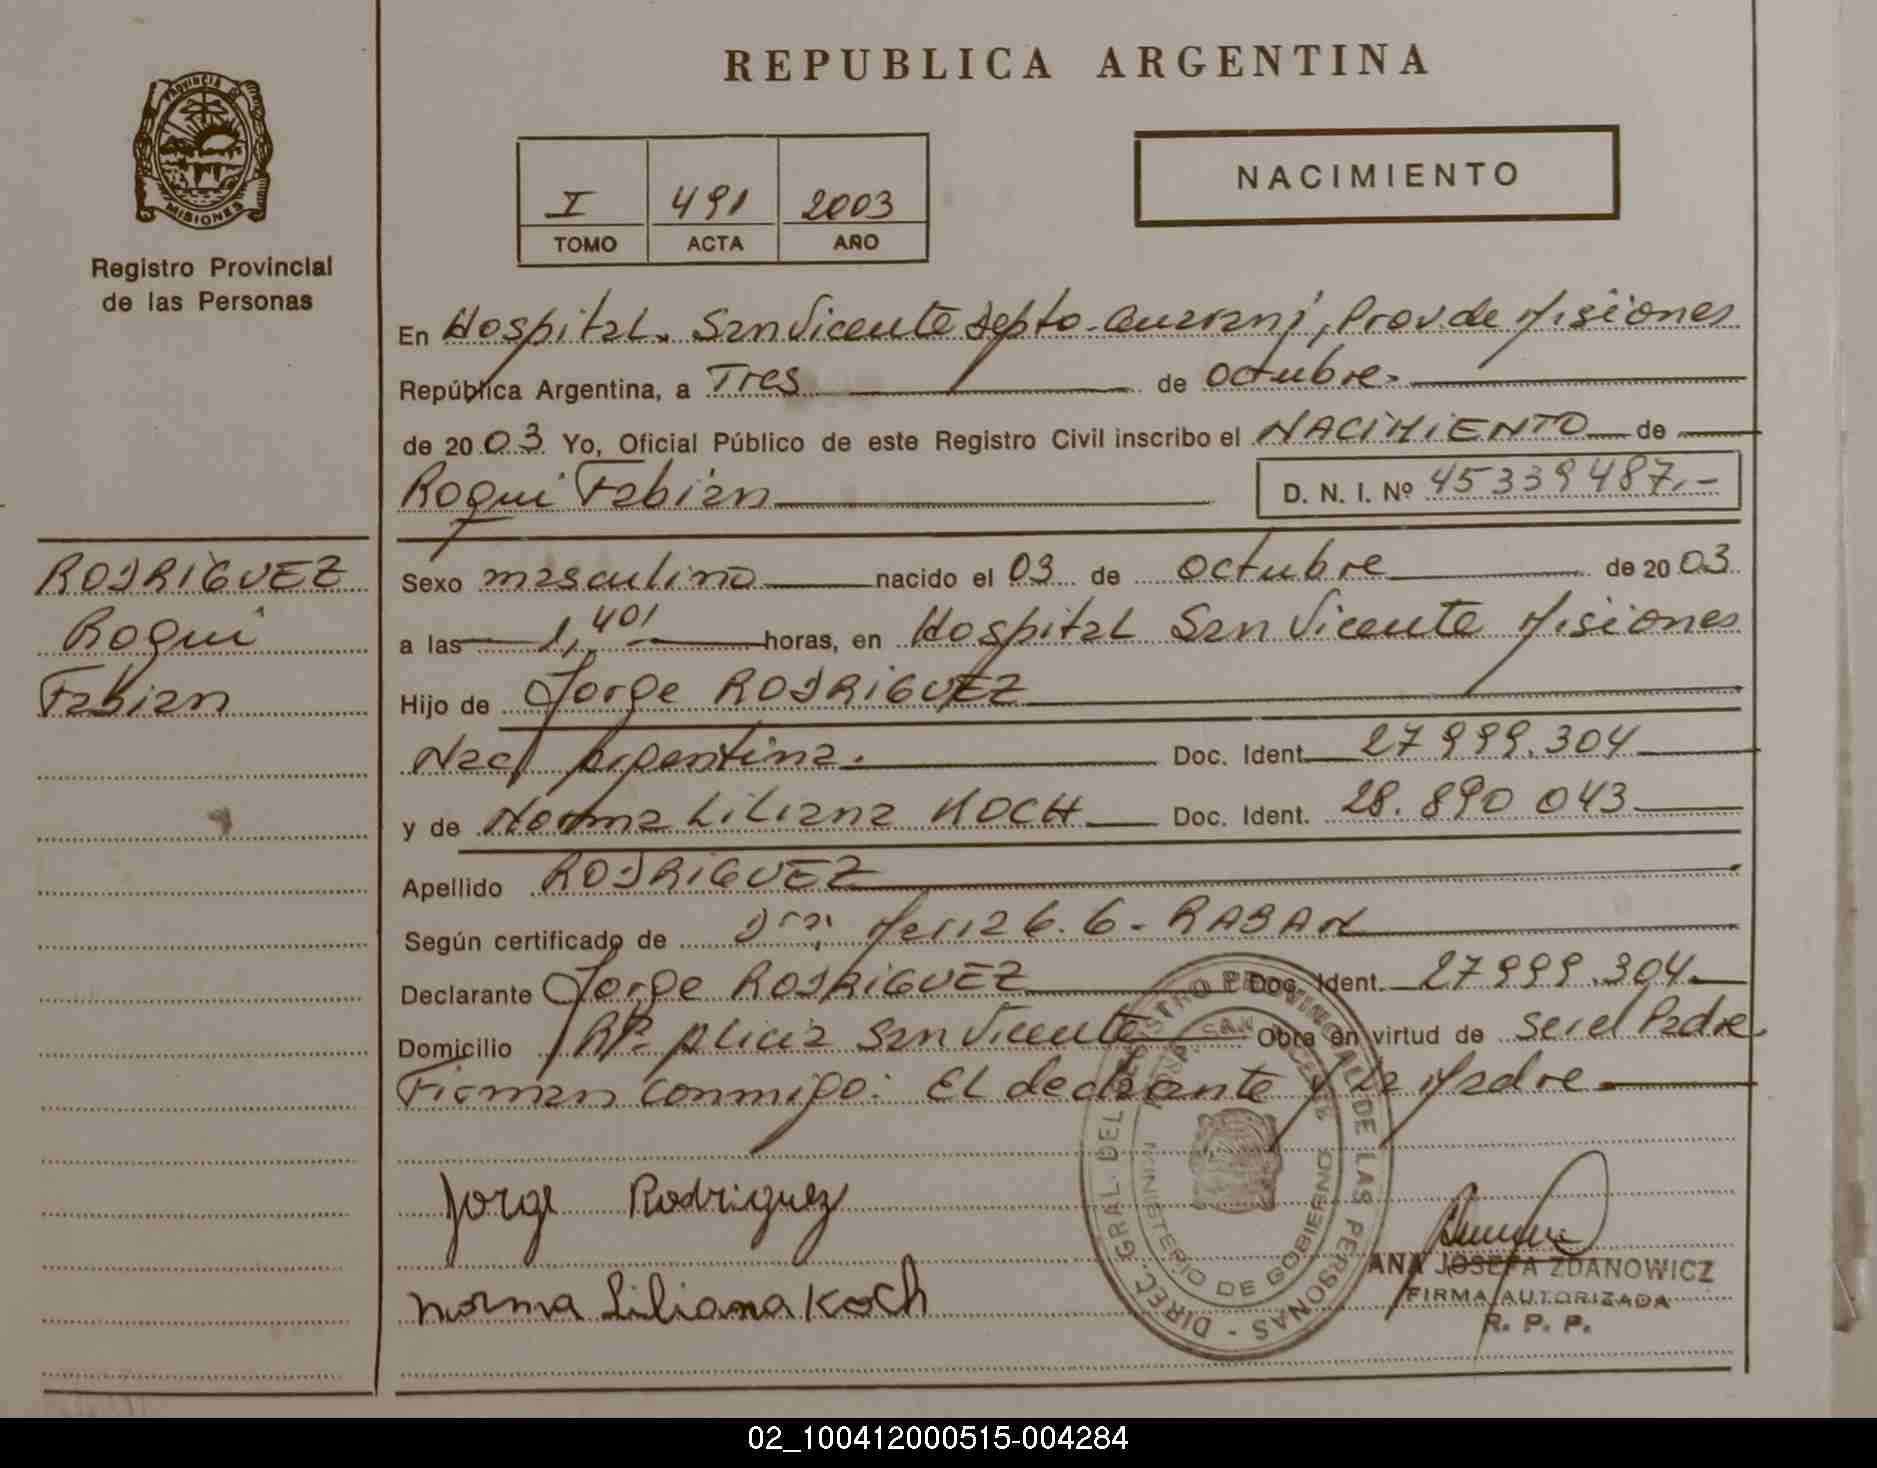 REPUBLICA ARGENTINA
PROVINCIA DE
MISIONES
Registro Provincial
de las Personas
I 491 2003
TOMO ACTA AÑO
NACIMIENTO
En Hospital. San Vicente Depto. Guarani, Prov. de Misiones
República Argentina, a Tres de octubre.
de 2003 Yo, Oficial Público de este Registro Civil inscribo el NACIMIENTO de
Roqui Fabián
D. N. I. Nº 45339487.-
RODRIGUEZ
Roqui
Fabian
Sexo masculino nacido el 03 de octubre de 2003
a las 1,40 horas, en Hospital San Vicente Misiones
Hijo de Jorge RODRIGUEZ
Nac. Argentina. Doc. Ident. 27999.304
y de Norma Liliana KOCH Doc. Ident. 28.890043
Apellido RODRIGUEZ
Según certificado de Dra. RABAN
Declarante Jorge RODRIGUEZ Doc. Ident. 27999.304.
Domicilio San Vicente Obra en virtud de ser el Padre
Firman conmigo: El declarante y la Madre
Jorge Rodriguez
Norma Liliana Koch
DIREC. GRAL. DEL REGISTRO PROVINCIAL DE LAS PERSONAS
MINISTERIO DE GOBIERNO
SAN VICENTE
ANA JOSEFA ZDANOWICZ
FIRMA AUTORIZADA
R. P. P.
02_100412000515-004284